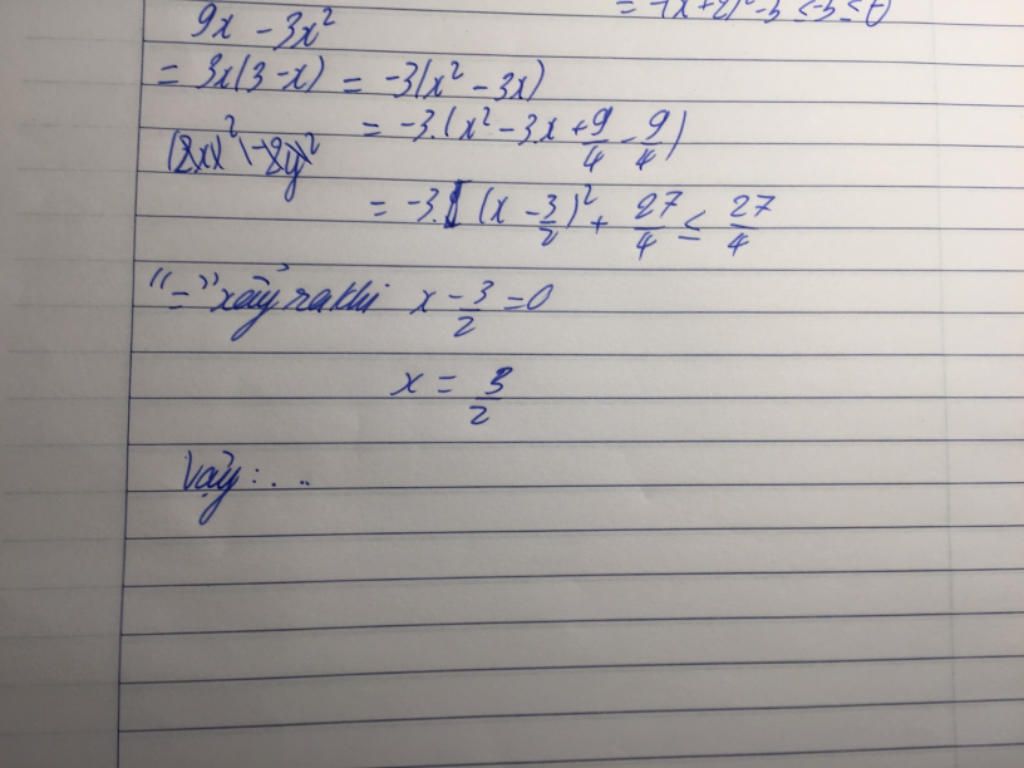 9x - 3x²
= 3x(3 - x) = -3(x² - 3x)
= -3.(x² - 3x + 9/4 - 9/4)
= -3. (x - 3/2)² + 27/4 ≤ 27/4
"=" xảy ra khi x - 3/2 = 0
x = 3/2
Vậy: ...